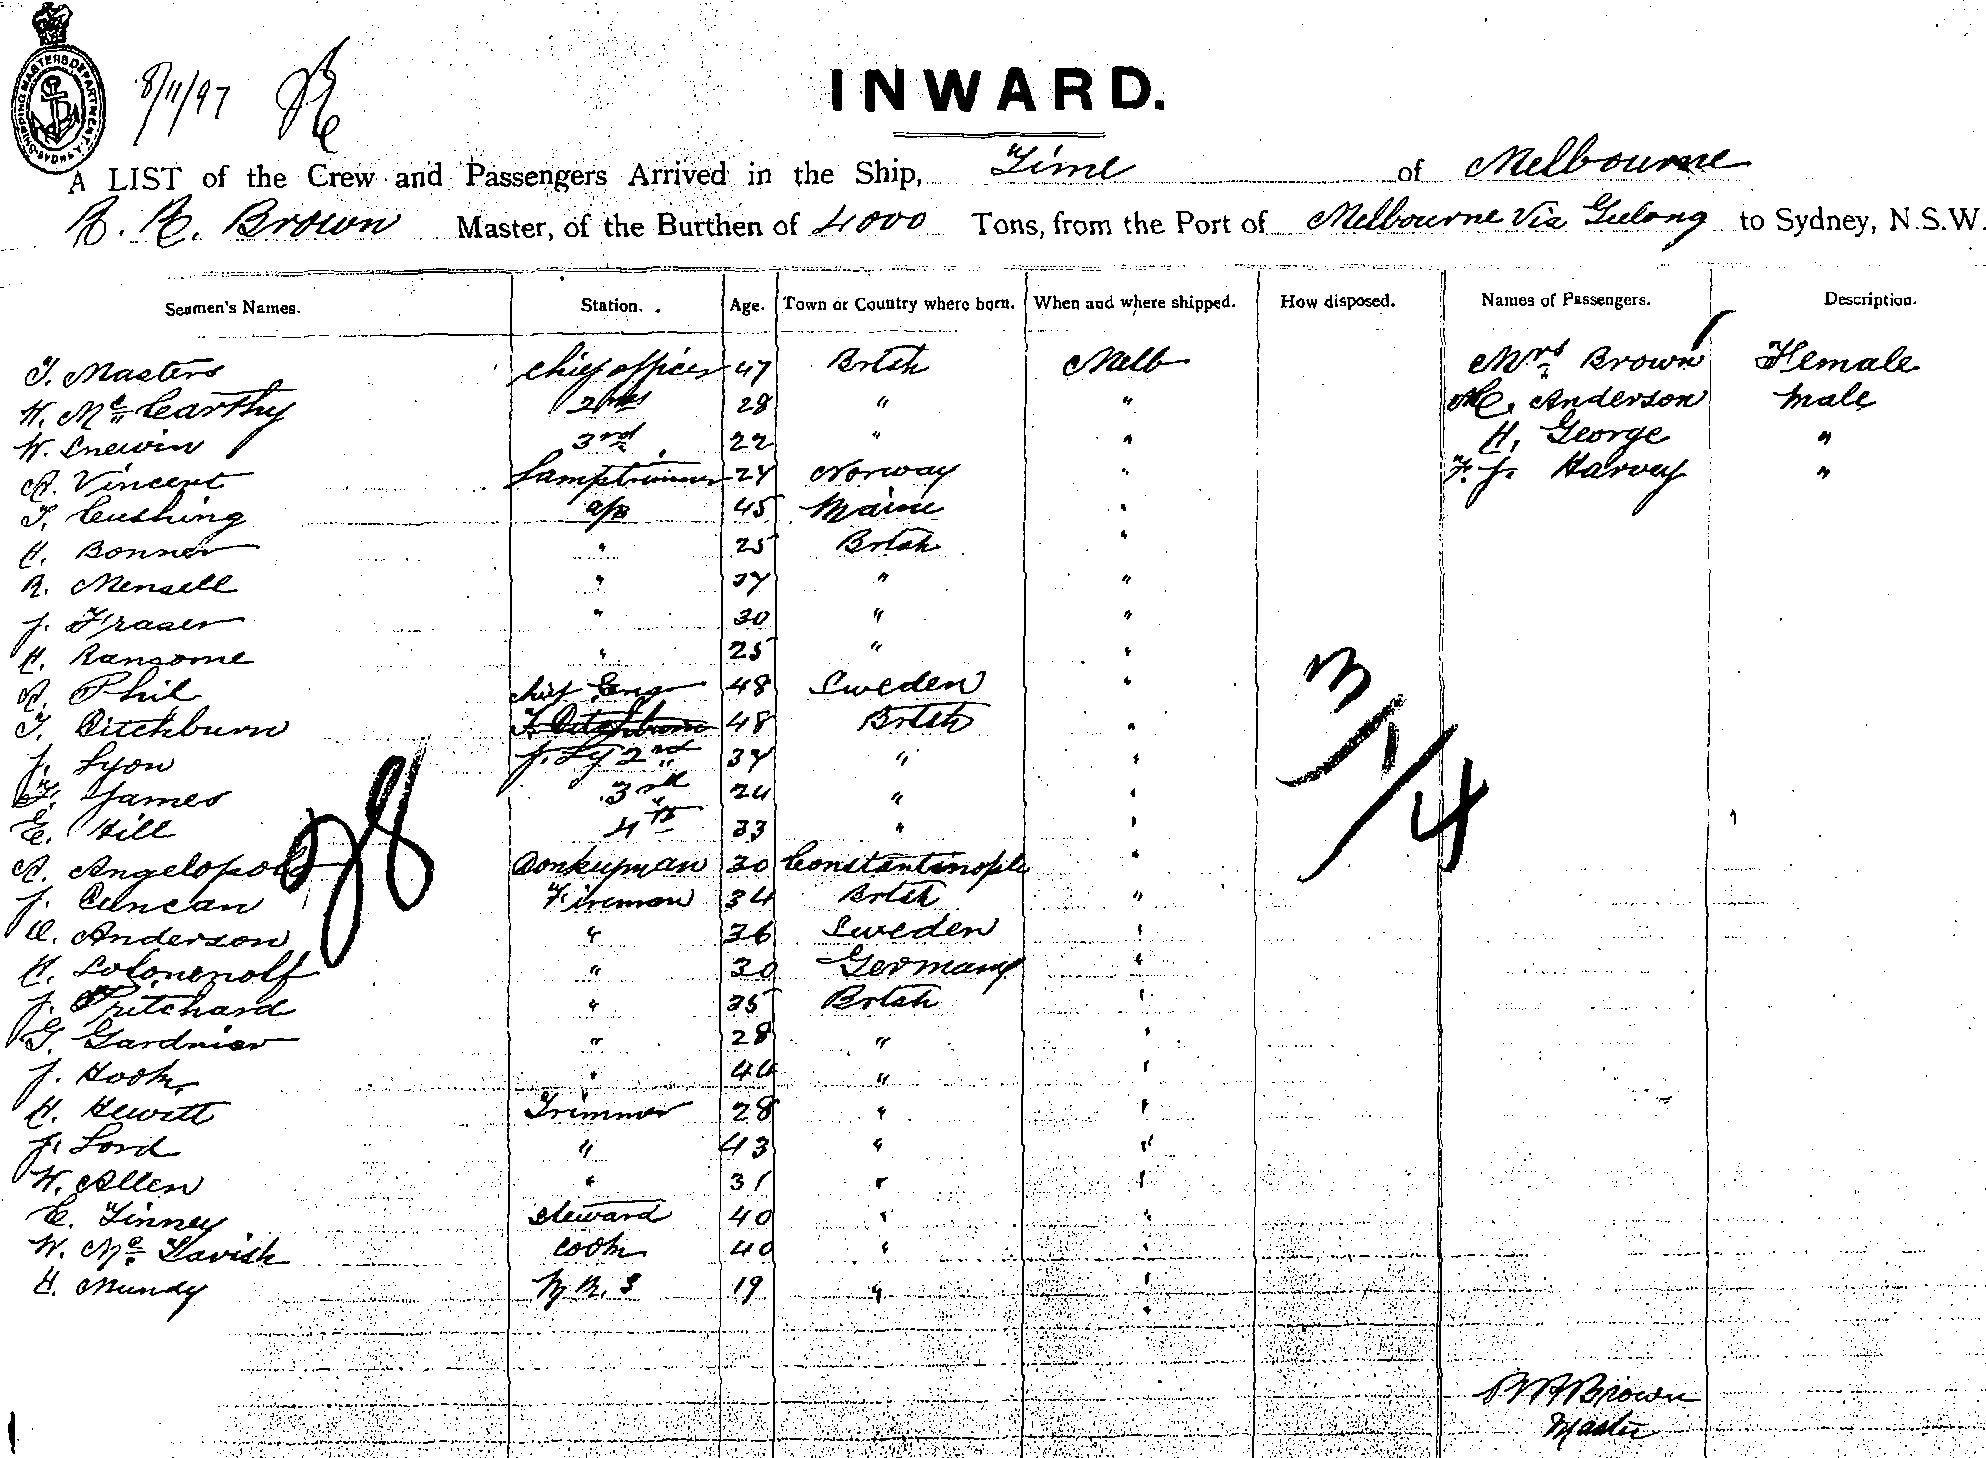 SHIPPING MASTERS DEPARTMENT SYDNEY
8/11/97
INWARD.
A LIST of the Crew and Passengers Arrived in the Ship, Time of Melbourne
R. R. Brown Master, of the Burthen of 4000 Tons, from the Port of Melbourne Via Geelong to Sydney, N.S.W.
Seamen's Names. Station. Age. Town or Country where born. When and where shipped. How disposed. Names of Passengers. Description.
T. Masters chief officer 47 Brtsh Melb Mrs Brown Female
H. Mc Carthy 2nd 28 " " Anderson male
W. Snewin 3rd 22 " " H. George "
A. Vincent Lamptrimmer 24 Norway " F. J. Harvey "
T. Cushing a/b 45 Maine "
H. Bonner " 25 Brtsh "
R. Mensell " 37 " "
J. Fraser " 30 " "
H. Ransome " 25 " "
A. Phil chief Engr 48 Sweden "
T. Ditchburn T. Ditchburn 48 Brtsh "
J. Lyon J. Ly 2nd 37 " "
F. James 3rd 24 " "
E. Hill 4th 33 " "
A. Angelopolo Donkeyman 30 Constantinople "
J. Duncan Fireman 34 Brtsh "
O. Anderson " 36 Sweden "
H. " 30 Germany "
J. Pritchard " 35 Brtsh "
G. Gardnier " 28 " "
J. Hook " 44 " "
H. Hewitt Trimmer 28 " "
J. Lord " 43 " "
W. Allen " 31 " "
E. Finney steward 40 " "
W. Mc Tavish cook 40 " "
H. Mundy M.R.S 19 " "
"
28
3/1/4
Brown
Master